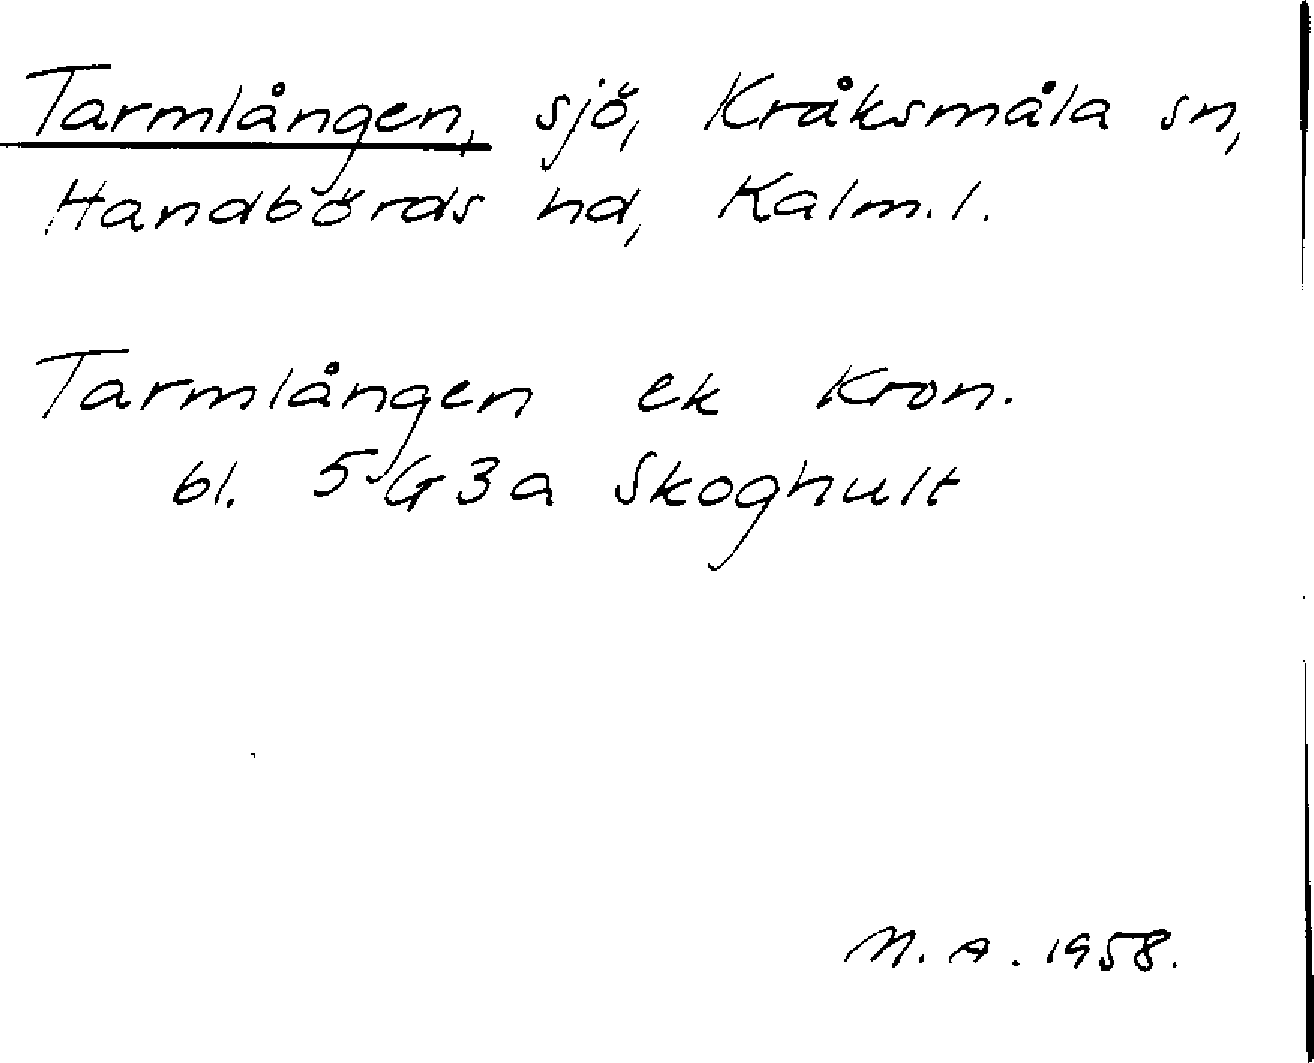 Tarmlången, sjö, Kråksmåla sn,
Handbörds hd, Kalm.l.
Tarmlången ek Kron.
bl. 5G3a Skoghult
M.A. 1958.